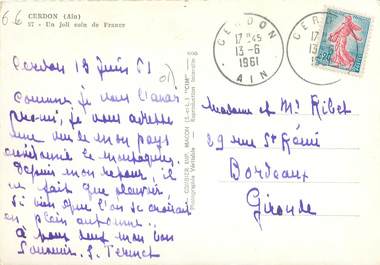 66
CERDON (Ain)
57 - Un joli coin de France
Cerdon 13 Juin 61
Comme je vous l'avais
promis, je vous adresse
une vue de mon pays
environné de montagnes.
Depuis mon retour, il
ne fait que pleuvoir
si bien que l'on se croirait
en plein automne.
À vous deux mon bon
Souvenir. S.
COMBIER IMP. MACON (S.-et-L.) "CIM"
Photographie Véritable
Reproduction Interdite
CERDON
17 45
13-6
1961
AIN
Madame et Mr Ribet
29 rue St Rémi
Bordeaux
Gironde